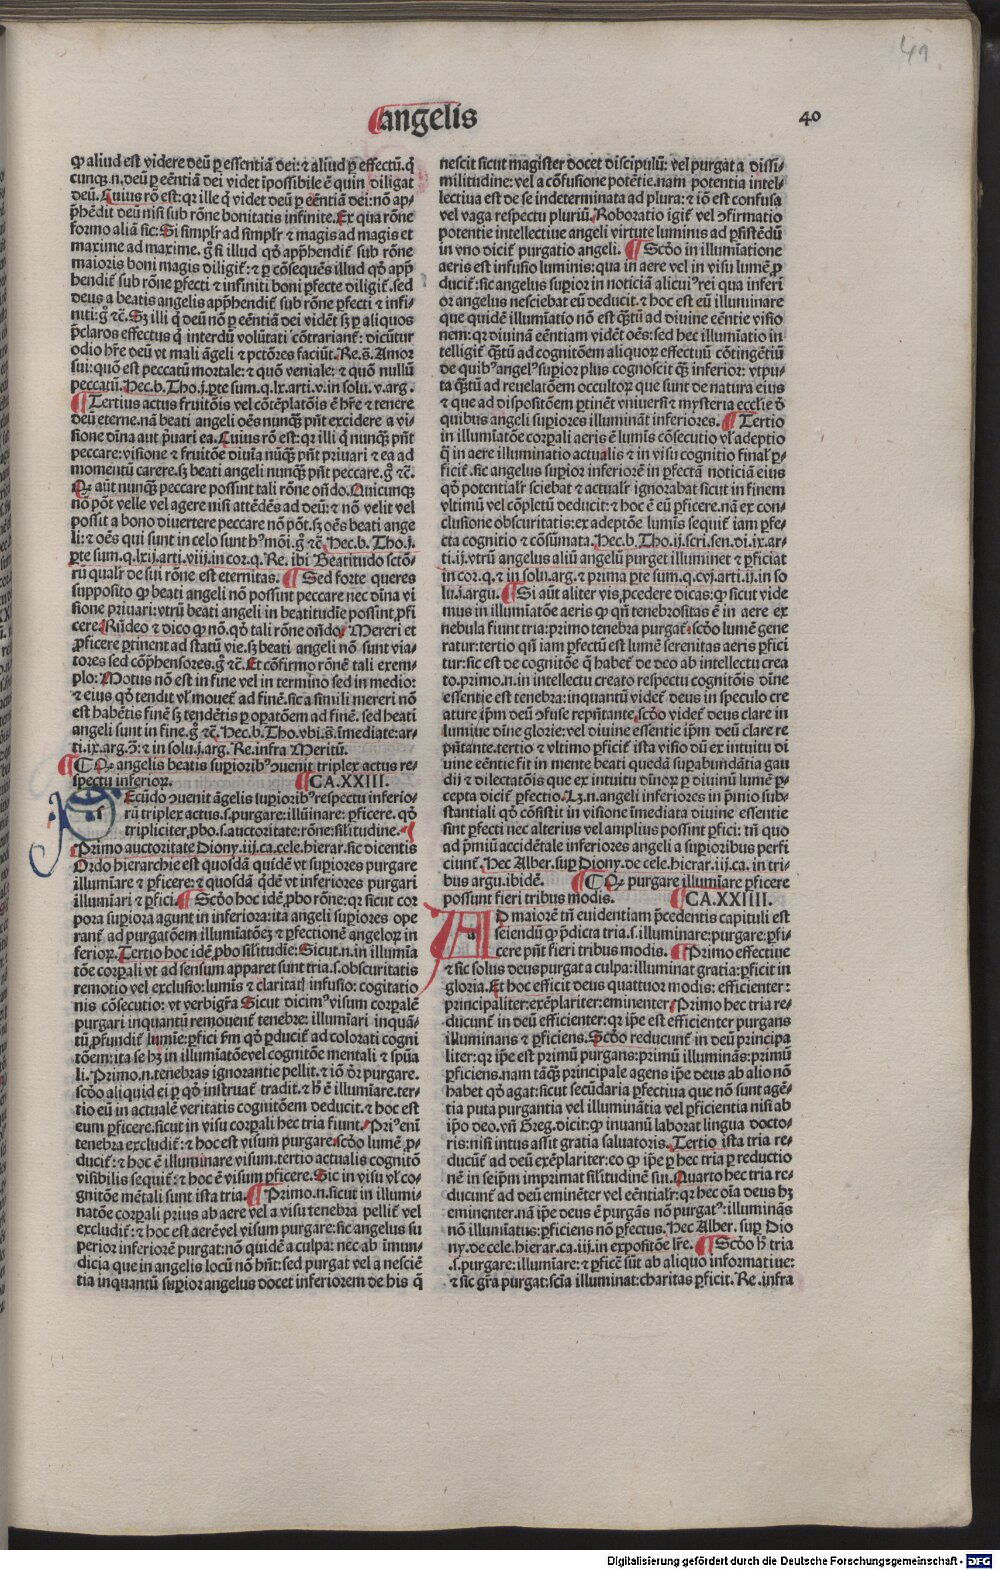 41
angelis
40
ꝙ aliud est videre deū ꝑ essentiā dei: ⁊ aliud ꝑ effectū. q̄
cunqꝫ .n. deū ꝑ eēntiā dei videt īpossibile ē quin diligat
deū. Cuius rō est: qꝛ ille q̄ videt deū ꝑ eēntiā dei: nō ap-
p̄hēdit deū nisi sub rōne bonitatis infinite. Ex qua rōne
formo aliā sic: Si simplr̄ ad simplr̄ ⁊ magis ad magis et
maxime ad maxime. g̊ si illud qḋ app̄hendit̄ sub rōne
maioris boni magis diligit̄: ⁊ ꝑ cōsequēs illud qḋ app̄
hendit̄ sub rōne ꝑfecti ⁊ infiniti boni ꝑfecte diligit̄. sed
deus a beatis angelis app̄hendit̄ sub rōne ꝑfecti ⁊ infi-
niti: g̊ ⁊c̄. Sꝫ illi q̄ deū nō ꝑ eēntiā dei vidēt sꝫ ꝑ aliquos
p̄claros effectus q̄ interdū volūtati cōtrariant̄: dicūtur
odio hr̄e deū vt mali āgeli ⁊ pctōres faciūt. Re. s̄. Amor
sui: quō est peccatū mortale: ⁊ quō veniale: ⁊ quō nullū
peccatū. Hec. b. Tho. j. ꝑte sum. q. lx. arti. v. in solu. v. arg.
¶ Tertius actus fruitōis vel cōtēplatōis ē hr̄e ⁊ tenere
deū eterne. nā beati angeli oēs nunqꝫ pn̄t excidere a vi-
sione dīna aut p̄uari ea. Cuius rō est: qꝛ illi q̄ nunqꝫ pn̄t
peccare: visione ⁊ fruitōe diuīa nūqꝫ pn̄t priuari ⁊ ea ad
momentū carere. sꝫ beati angeli nunqꝫ pn̄t peccare. g̊ ⁊c̄.
Qꝙ aūt nunqꝫ peccare possint tali rōne on̄do. Quicunqꝫ
nō pōt velle vel agere nisi attēdēs ad deū: ⁊ nō velit vel
possit a bono diuertere peccare nō pōt. sꝫ oēs beati ange
li: ⁊ oēs qui sunt in celo sunt hꝰmōi. g̊ ⁊c̄. Hec. b. Tho. j.
ꝑte sum. q. lxij. arti. viij. in cor. q. Re. ibi Beatitudo sctō-
rū qualr̄ de sui rōne est eternitas. ¶ Sed forte queres
supposito ꝙ beati angeli nō possint peccare nec dīna vi
sione priuari: vtrū beati angeli in beatitudīe possint ꝓfi
cere. Rn̄deo ⁊ dico ꝙ nō. qḋ tali rōne on̄do. Mereri et
ꝓficere ꝑtinent ad statū vie. sꝫ beati angeli nō sunt via-
tores sed cōp̄hensores. g̊ ⁊c̄. Et cōfirmo rōnē tali exem-
plo: Motus nō est in fine vel in termino sed in medio:
⁊ eius qḋ tendit vl̓ mouet̄ ad finē. sic a simili mereri nō
est habētis finē sꝫ tendētis ꝑ oꝑatōem ad finē. sed beati
angeli sunt in fine. g̊ ⁊c̄. Hec. b. Tho. vbi. s̄. īmediate: ar-
ti. ix. arg. ꝯ̄: ⁊ in solu. j. arg. Re. infra Meritū.
¶ Qꝙ angelis beatis suꝑioribꝰ ꝯuenit triplex actus re-
spectu inferioꝝ. ¶ CA.XXIII.
s Ecūdo ꝯuenit āgelis suꝑioribꝰ respectu inferio-
rū triplex actus. s. purgare: illūinare: ꝑficere. qḋ
tripliciter ꝓbo. s. auctoritate: rōne: sil̓itudine. ¶
Primo auctoritate Diony. iij. ca. cele. hierar. sic dicentis
Ordo hierarchie est quosdā quidē vt suꝑiores purgare
illumīare ⁊ ꝑficere: ⁊ quosdā q̇dē vt inferiores purgari
illumīari ⁊ ꝑfici. ¶ Scḋo hoc idē ꝓbo rōne: qꝛ sicut cor
pora suꝑiora agunt in inferiora: ita angeli suꝑiores ope
rant̄ ad purgatōem illumīatōeꝫ ⁊ ꝑfectionē angeloꝝ in
ferioꝝ. Tertio hoc idē ꝓbo sil̓itudīe: Sicut .n. in illumīa
tōe corꝑali vt ad sensum apparet sunt tria. s. obscuritatis
remotio vel exclusio: lumīs ⁊ claritatꝭ infusio: cogitatio
nis cōsecutio: vt verbigr̄a Sicut dicimꝰ visum corꝑalē
purgari inquantū remouent̄ tenebre: illumīari inquā-
tū ꝑfundit̄ lumīe: ꝑfici fm̄ qḋ ꝑducit̄ ad colorati cogni
tōem: ita se hꝫ in illumīatōe vel cognitōe mentali ⁊ spūa
li. Primo .n. tenebras ignorantie pellit. ⁊ iō dr̄ purgare.
scḋo aliquid ei ꝑ qḋ instruat̄ tradit. ⁊ h̄ ē illumīare. ter-
tio eū in actualē veritatis cognitōem deducit. ⁊ hoc est
eum ꝑficere. sicut in visu corꝑali hec tria fiunt. Pri° enī
tenebra excludit̄: ⁊ hoc est visum purgare. scḋo lumē ꝓ-
ducit̄: ⁊ hoc ē illuminare visum. tertio actualis cognitō
visibilis sequit̄: ⁊ hoc ē visum ꝑficere. Sic in visu vl̓ co-
gnitōe mētali sunt ista tria. ¶ Primo .n. sicut in illumi-
natōe corꝑali prius ab aere vel a visu tenebra pellit̄ vel
excludit̄: ⁊ hoc est aerē vel visum purgare: sic angelus su
perior inferiorē purgat: nō quidē a culpa: nec ab īmun-
dicia que in angelis locū nō hn̄t: sed purgat vel a nesciē
tia inquantū suꝑior angelus docet inferiorem de his q̄
nescit sicut magister docet discipulū: vel purgat a dissi-
militudine: vel a cōfusione potētie. nam potentia intel-
lectiua est de se indeterminata ad plura: ⁊ iō est confusa
vel vaga respectu pluriū. Roboratio igit̄ vel ꝯfirmatio
potentie intellectiue angeli virtute luminis ad ꝑsistēdū
in vno dicit̄ purgatio angeli. ¶ Scḋo in illumīatione
aeris est infusio luminis: qua in aere vel in visu lumē ꝓ
ducit̄: sic angelus suꝑior in noticiā alicuiꝰ rei qua inferi
or angelus nesciebat eū deducit. ⁊ hoc est eū illuminare
que quidē illumīatio nō est qꝫtū ad diuine eēntie visio
nem: qꝛ diuinā eēntiam vidēt oēs: sed hec illumīatio in
telligit̄ qꝫtū ad cognitōem aliquoꝝ effectuū cōtingētiū
de quibꝰ angelꝰ suꝑior plus cognoscit qꝫ inferior: vtpu-
ta qꝫtū ad reuelatōem occultoꝝ que sunt de natura eius
⁊ que ad dispositōem ꝑtinēt vniuersi ⁊ mysteria ecclīe d̄
quibus angeli suꝑiores illumināt inferiores. ¶ Tertio
in illumīatōe corꝑali aeris ē lumīs cōsecutio vl̓ adeptio
q̄ in aere illuminatio actualis ⁊ in visu cognitio final̓ ꝑ-
ficit̄. sic angelus suꝑior inferiorē in ꝑfectā noticiā eius
qḋ potentialr̄ sciebat ⁊ actualr̄ ignorabat sicut in finem
vltimū vel cōpletū deducit: ⁊ hoc ē eū ꝑficere. nā ex con-
clusione obscuritatis: ex adeptōe lumīs sequit̄ iam ꝑfe-
cta cognitio ⁊ cōsūmata. Hec. b. Tho. ij. scri. sen. di. ix. ar-
ti. ij. vtrū angelus aliū angelū purget illuminet ⁊ ꝑficiat
in cor. q. ⁊ in solu. arg. ⁊ prima ꝑte sum. q. cvj. arti. ij. in so
lu. j. argu. ¶ Si aūt aliter vis ꝓcedere dicas: ꝙ sicut vide
mus in illumīatōe aeris ꝙ qn̄ tenebrositas ē in aere ex
nebula fiunt tria: primo tenebra purgat̄. scḋo lumē gene
ratur: tertio qn̄ iam ꝑfectū est lumē serenitas aeris ꝑfici
tur: sic est de cognitōe q̄ habet̄ de deo ab intellectu crea
to. primo .n. in intellectu creato respectu cognitōis dīne
essentie est tenebra: inquantū videt̄ deus in speculo cre
ature ip̄m deū ꝯfuse rep̄ntante. scḋo videt̄ deus clare in
lumine dīne glorie: vel diuine essentie ip̄m deū clare re
p̄ntante. tertio ⁊ vltimo ꝑficit̄ ista visio dū ex intuitu di
uine eēntie fit in mente beati quedā suꝑabundātia gau
dij ⁊ dilectatōis que ex intuitu dīnoꝝ ꝑ diuinū lumē ꝑ-
cepta dicit̄ ꝑfectio. Lꝫ .n. angeli inferiores in p̄mio sub-
stantiali qḋ cōsistit in visione īmediata diuine essentie
sint ꝑfecti nec alterius vel amplius possint ꝑfici: tn̄ quo
ad p̄miū accidētale inferiores angeli a suꝑioribus ꝑfi
ciunt̄. Hec Alber. suꝑ Diony. de cele. hierar. iij. ca. in tri-
bus argu. ibidē. ¶ Qꝙ purgare illumīare ꝑficere
possunt fieri tribus modis. ¶ CA.XXIIII.
A D maiorē tn̄ euidentiam p̄cedentis capituli est
sciendū ꝙ p̄dicta tria. s. illuminare: purgare: ꝑfi-
cere pn̄t fieri tribus modis. ¶ Primo effectiue
⁊ sic solus deus purgat a culpa: illuminat gratia: ꝑficit in
gloria. Et hoc efficit deus quattuor modis: efficienter:
principaliter: exēplariter: eminenter. Primo hec tria re-
ducunt̄ in deū efficienter: qꝛ ip̄e est efficienter purgans
illuminans ⁊ ꝑficiens. Scḋo reducunt̄ in deū principa
liter: qꝛ ip̄e est primū purgans: primū illumināns: primū
ꝑficiens. nam tāqꝫ principale agens ip̄e deus ab alio nō
habet qḋ agat: sicut secūdaria ꝑfectiua que nō sunt agē-
tia puta purgantia vel illuminātia vel ꝑficientia nisi ab
ip̄o deo. vn̄ Greg. dicit: ꝙ inuanū laborat lingua docto-
ris: nisi intus assit gratia saluatoris. Tertio ista tria re-
ducūt̄ ad deū exēplariter: eo ꝙ ip̄e ꝑ hec tria ꝑ reductio
nē in seip̄m imprimat sil̓itudinē sui. Quarto hec tria re-
ducunt̄ ad deū eminēter vel eēntialr̄: qꝛ hec oīa deus hꝫ
eminenter. nā ip̄e deus ē purgās nō purgatꝰ: illumināns
nō illumīatus: ꝑficiens nō ꝑfectus. Hec Alber. suꝑ Dio
ny. de cele. hierar. ca. iij. in expositōe lr̄e. ¶ Scḋo h̄ tria
.s. purgare: illumīare: ⁊ ꝑficē sūt ab aliquo informatiue:
⁊ sic gr̄a purgat: scīa illuminat: charitas ꝑficit. Re. infra
Digitalisierung gefördert durch die Deutsche Forschungsgemeinschaft - DFG